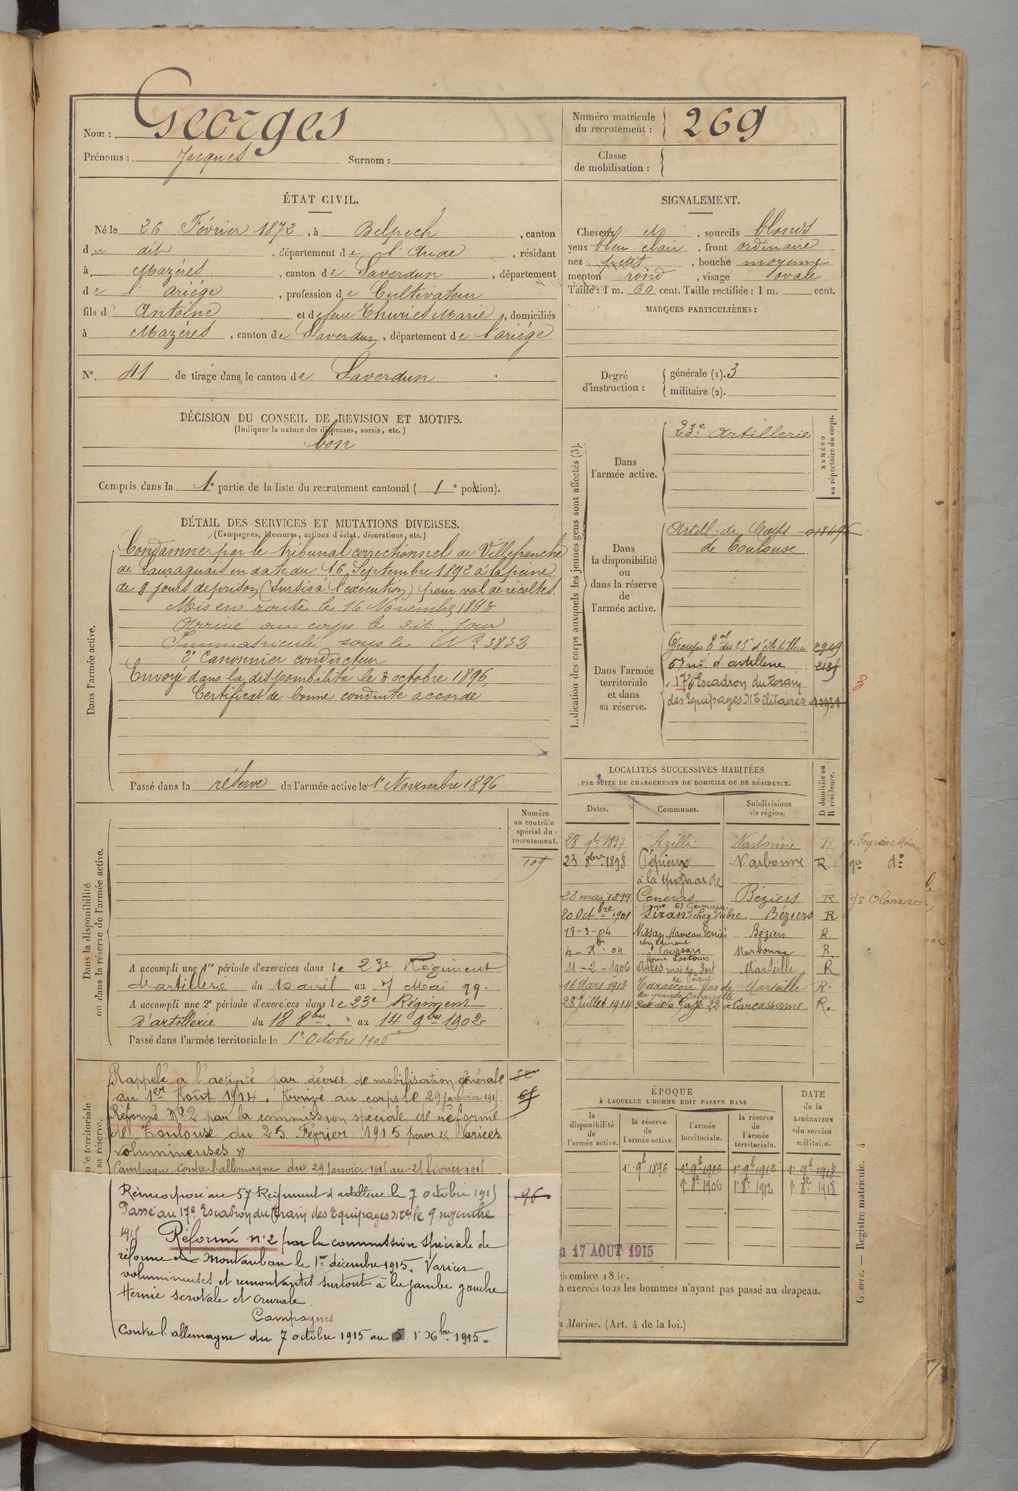 Nom : Georges
Prénoms : Jacques Surnom :
Numéro matricule du recrutement : 269
Classe de mobilisation :
ÉTAT CIVIL.
Né le 26 Février 1872, à Belpech, canton
du dit, département de l'Aude, résidant
à Mazères, canton de Saverdun, département
de l'Ariège, profession de Cultivateur
fils d' Antoine et de feue Thuriès Marie, domiciliés
à Mazères, canton de Saverdun, département de l'Ariège
N° 41 de tirage dans le canton de Saverdun
DÉCISION DU CONSEIL DE REVISION ET MOTIFS.
(Indiquer la nature des dispenses, sursis, etc.)
bon
Compris dans la 1e partie de la liste du recrutement cantonal ( 1e portion).
DÉTAIL DES SERVICES ET MUTATIONS DIVERSES.
(Campagnes, blessures, actions d'éclat, décorations, etc.)
Dans l'armée active.
Condamné par le tribunal correctionnel de Villefranche
de Lauraguais en date du 16 Septembre 1892 à la peine
de 8 jours de prison (sursis à l'exécution) pour vol de récoltes.
Mis en route le 16 Novembre 1893
Arrivé au corps le dit jour
Immatriculé sous le N° 3833
2e Canonnier conducteur
Envoyé dans la disponibilité le 3 octobre 1896
Certificat de bonne conduite accordé
Passé dans la réserve de l'armée active le 1er Novembre 1896
SIGNALEMENT.
Cheveux et, sourcils blonds
yeux bleu clair, front ordinaire
nez petit, bouche moyenne
menton rond, visage ovale
Taille : 1 m. 60 cent. Taille rectifiée : 1 m. cent.
MARQUES PARTICULIÈRES :
Degré d'instruction : générale (1). 3
militaire (2).
Indication des corps auxquels les jeunes gens sont affectés (3).
NUMÉRO au répertoire du corps.
Dans l'armée active.
23e Artillerie
Dans la disponibilité ou dans la réserve de l'armée active.
Artill. de Corps
de Toulouse
Dans l'armée territoriale et dans sa réserve.
57 rég. d'artillerie
17e Escadron du Train
des Equipages Militaires
LOCALITÉS SUCCESSIVES HABITÉES
PAR SUITE DE CHANGEMENTS DE DOMICILE OU DE RÉSIDENCE.
Dates. Communes. Subdivisions de région. D domicile ou R résidence.
28 9bre 1897 Azille Narbonne R
23 1898 Pépieux Narbonne R
20 mai 1899 Béziers R
20 Octbre 1901 Siran Béziers R
18-3-04 Nissan Béziers R
04 Narbonne R
11-2-1906 Marseille R
16 Mars 1912 Tarascon Marseille R.
28 juillet 1914 Carcassonne R.
Numéro au contrôle spécial du recrutement.
Dans la disponibilité ou dans la réserve de l'armée active.
A accompli une 1re période d'exercices dans le 23e Régiment
d'artillerie du 10 avril au 7 Mai 99.
A accompli une 2e période d'exercices dans le 23e Régiment
d'artillerie du 18 8bre au 14 9bre 1902
Passé dans l'armée territoriale le 1er Octobre 1906
Rappelé à l'activité par décret de mobilisation générale
du 1er Août 1914. Arrivé au corps le 29 janvier 1915
Réformé N° 2 par la commission spéciale de réforme
de Toulouse du 25 Février 1915 pour « Varices
volumineuses »
Campagne contre l'allemagne du 29 Janvier 1915 au 25 février 1915
Réincorporé au 57e Régiment d'artillerie le 7 octobre 1915
Passé au 17e Escadron du Train des Equipages Mres le 9 novembre
1915 Réformé n° 2 par la commission spéciale de
réforme de Montauban le 1er décembre 1915. Varices
volumineuses et remontantes surtout à la jambe gauche
Hernie scrotale et crurale.
Campagnes
Contre l'allemagne du 7 octobre 1915 au 1er Xbre 1915.
96
ÉPOQUE
À LAQUELLE L'HOMME DOIT PASSER DANS
la disponibilité de l'armée active. la réserve de l'armée active. l'armée territoriale. la réserve de l'armée territoriale. DATE de la LIBÉRATION du service militaire.
1er 9bre 1896
1er 8bre 1906 1er 8bre 1912 1er 8bre 1918
17 AOUT 1915
exercés tous les hommes n'ayant pas passé au drapeau.
Marine. (Art. 4 de la loi.)
Registre matricule. 4